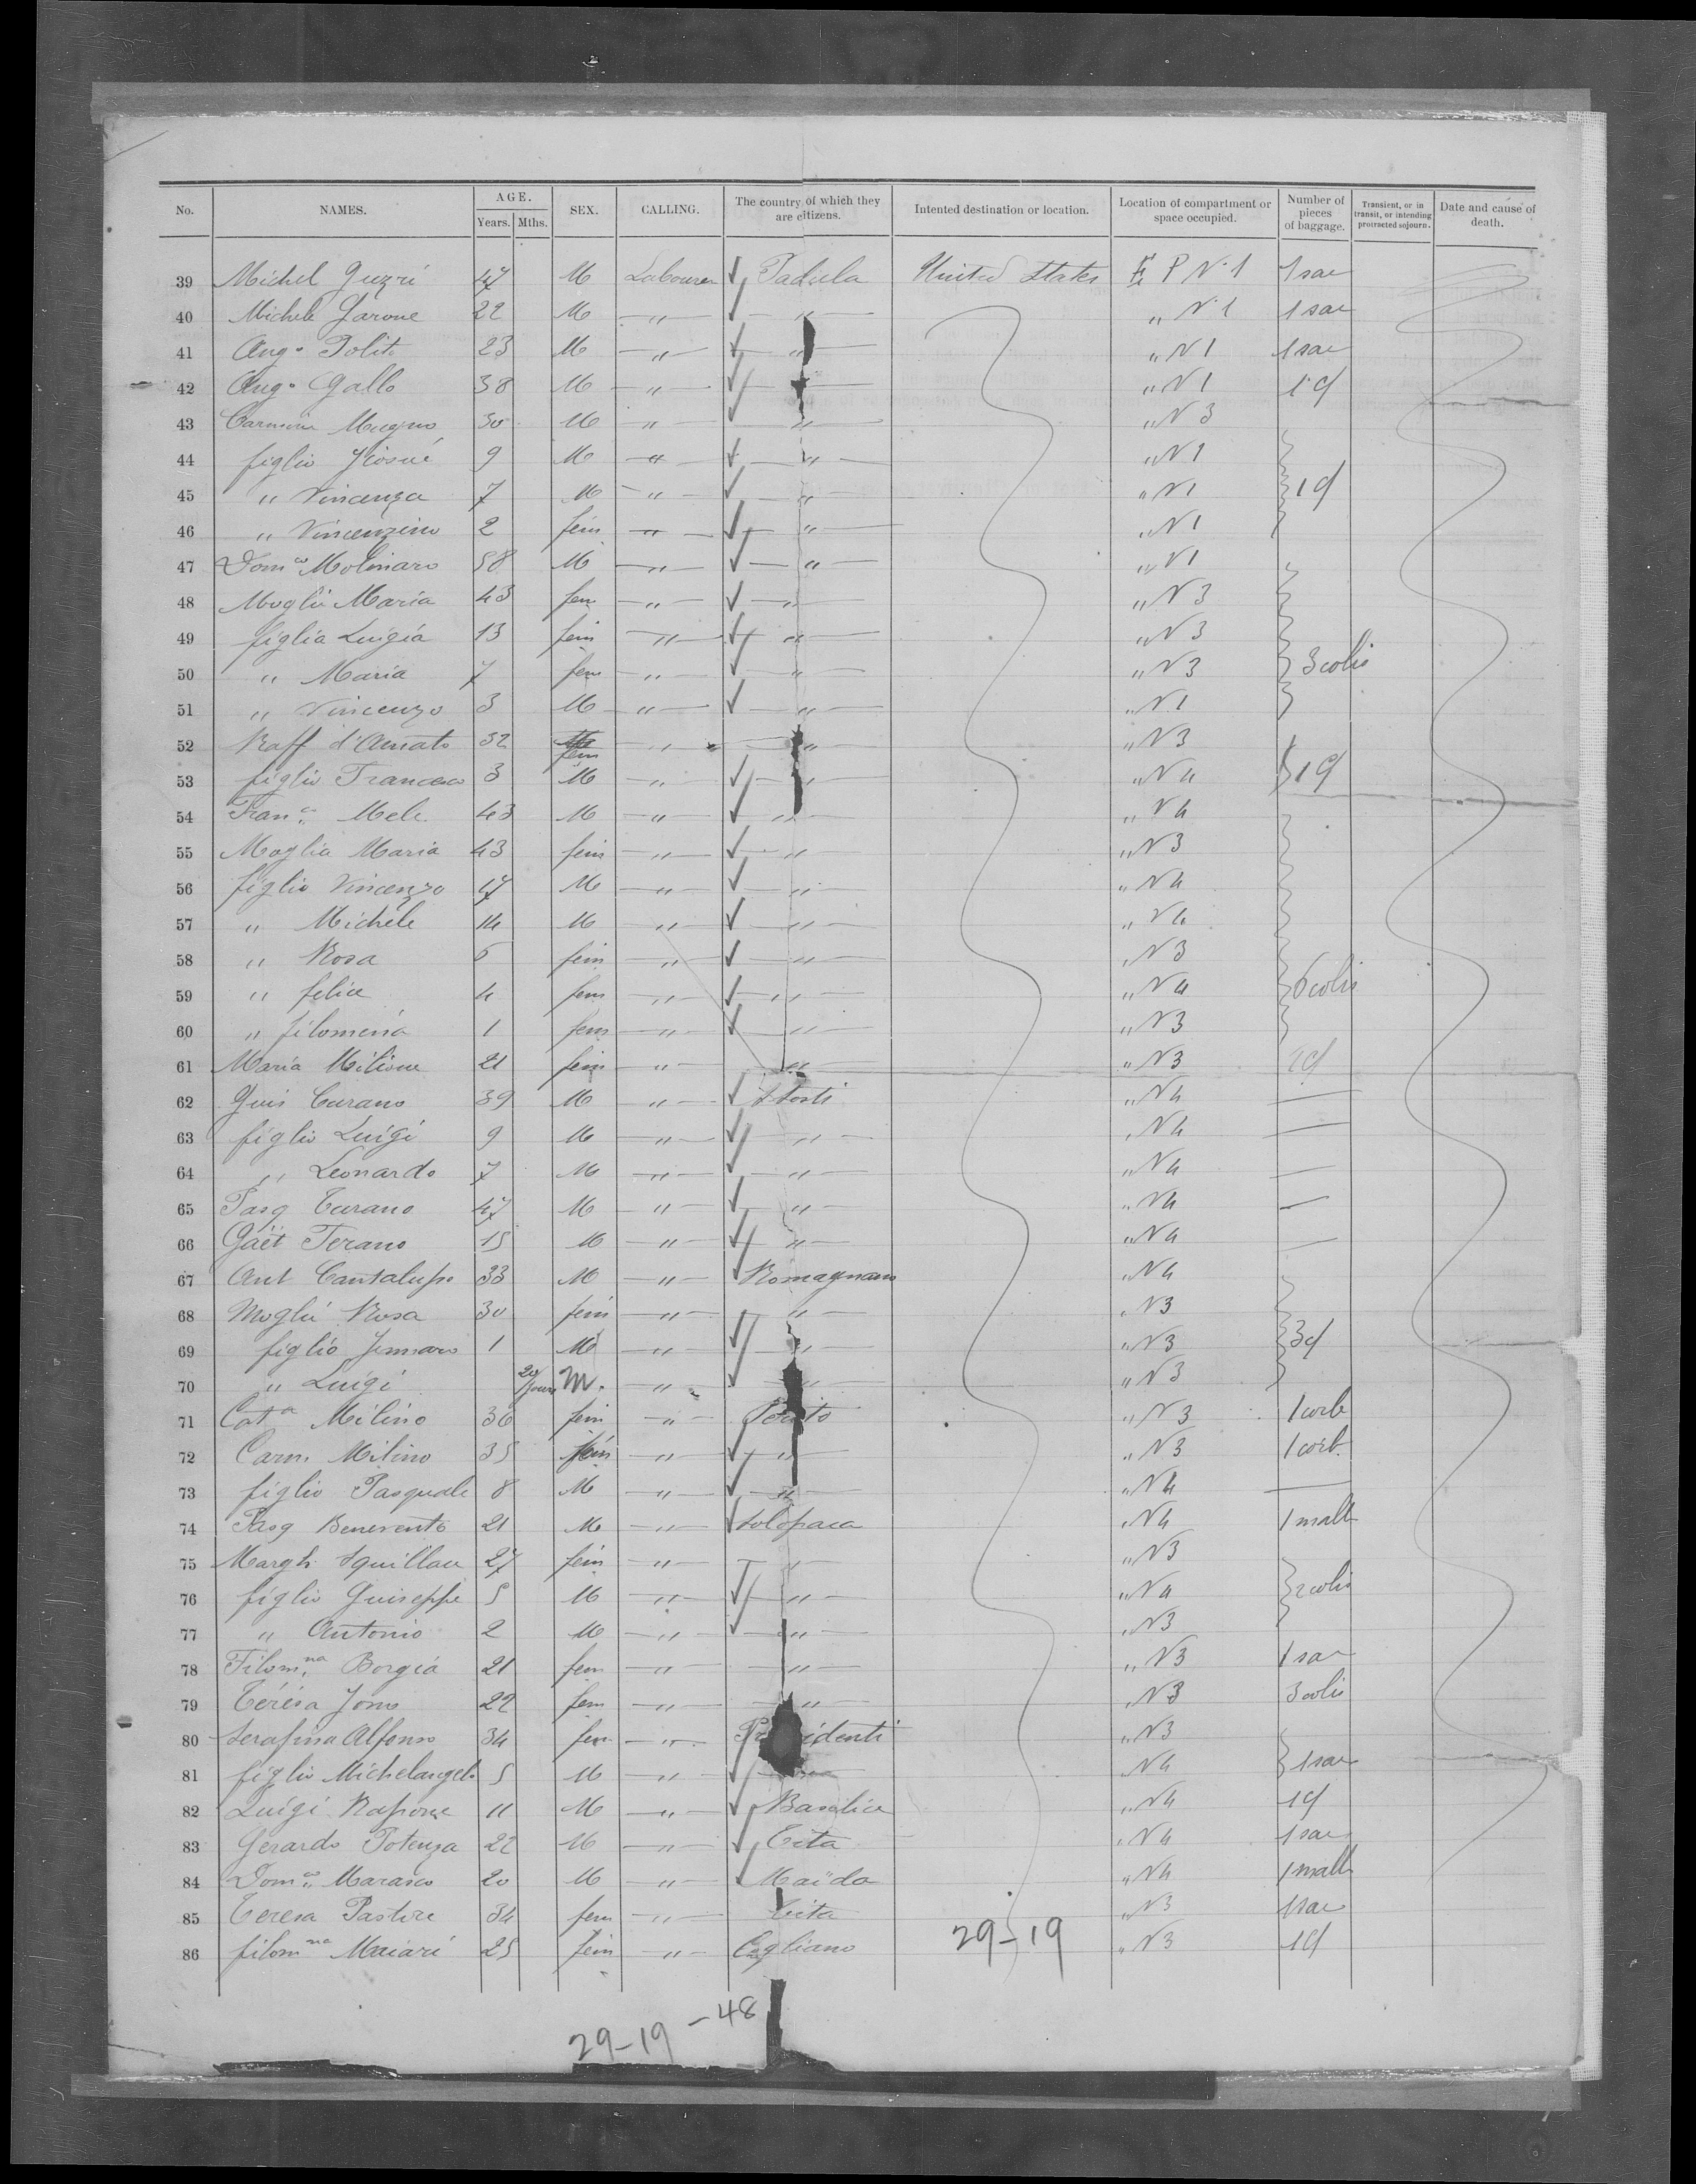 No. NAMES. AGE. Years. Mths. SEX. CALLING. The country of which they are citizens. Intented destination or location. Location of compartment or space occupied. Number of pieces of baggage. Transient, or in transit, or intending protracted sojourn. Date and cause of death.
39 Michel 47 M Labourer Padula United States E P N 1 1 sac
40 Michele 22 M " " " N 1 1 sac
41 Ang. Polito 23 M " " " N 1 1 sac
42 Ang. Gallo 38 M " " " N 1 1 C/
43 Carmine Mugno 30 M " " " N 3
44 figlio Giosué 9 M " " " N 1
45 " Vincenza 7 M " " " N 1 1 C/
46 " Vincenzino 2 fem " " " N 1
47 Dom.co Molinaro 58 M " " " N 1
48 Moglie Maria 43 fem " " " N 3
49 figlia Luigia 13 fem " " " N 3
50 " Maria 7 fem " " " N 3 3 colis
51 " Vincenzo 3 M " " " N 1
52 Raff d'Amato 32 fem " " " N 3
53 figlio Francesco 3 M " " " N 4 1 C/
54 Fran.co Mele 43 M " " " N 4
55 Moglia Maria 43 fem " " " N 3
56 figlio Vincenzo 17 M " " " N 4
57 " Michele 14 M " " " N 4
58 " Rosa 6 fem " " " N 3
59 " felice 4 fem " " " N 4 6 colis
60 " filomena 1 fem " " " N 3
61 Maria Milione 21 fem " " " N 3
62 Gius Curano 39 M " " N 4
63 figlio Luigi 9 M " " " N 4
64 " Leonardo 7 M " " " N 4
65 Pasq Curano 47 M " " " N 4
66 Gaët Terano 15 M " " " N 4
67 Ant Cantalupo 33 M " Romagnano " N 4
68 Moglié Rosa 30 fem " " " N 3
69 figlio Jennaro 1 M " " " N 3 3 C/
70 " Luigi 20 jours M. " " " N 3
71 Cat.a Milino 36 fem " " N 3 1 corb
72 Carm. Milino 35 fem " " " N 3 1 corb.
73 figlio Pasquale 8 M " " " N 4
74 Pasq Benevento 21 M " Solopaca " N 4 1 malle
75 Margh Squillace 27 fem " " " N 3
76 figlio Guiseppe 5 M " " " N 4 2 colis
77 " Antonio 2 M " " " N 3
78 Filom.na Borgia 21 fem " " " N 3 1 sac
79 Térésa Jono 22 fem " " " N 3 3 colis
80 Serafina Alfonso 34 fem " identi " N 3
81 figlio Michelangelo 5 M " " N 4 1 sac
82 Luigi Rapone 11 M " Baselice " N 4 1 C/
83 Gerardo Potenza 22 M " Tita " N 4 1 sac
84 Dom.co Marasco 20 M " Maïda " N 4 1 malle
85 Teresa Pastore 34 fem " Tita " N 3 1 sac
86 filom.na Maiari 25 fem " Cogliano " N 3 1 C/
29-19
29-19-48